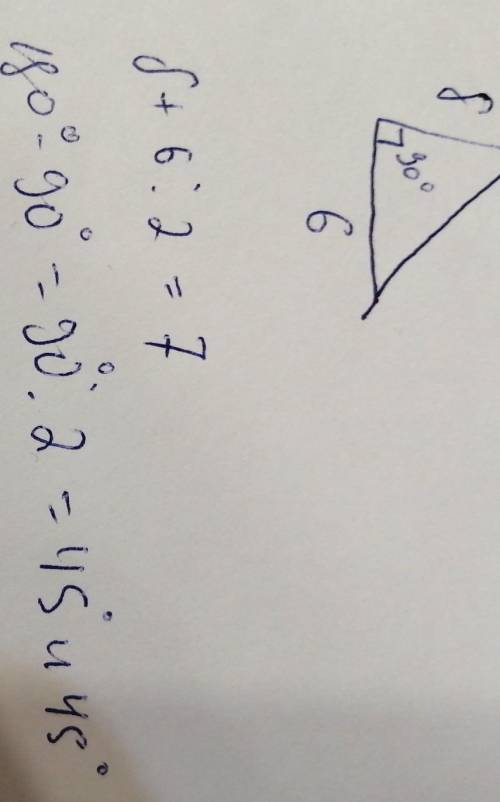 8
90°
6
8 + 6 : 2 = 7
180° - 90° = 90° : 2 = 45° и 45°